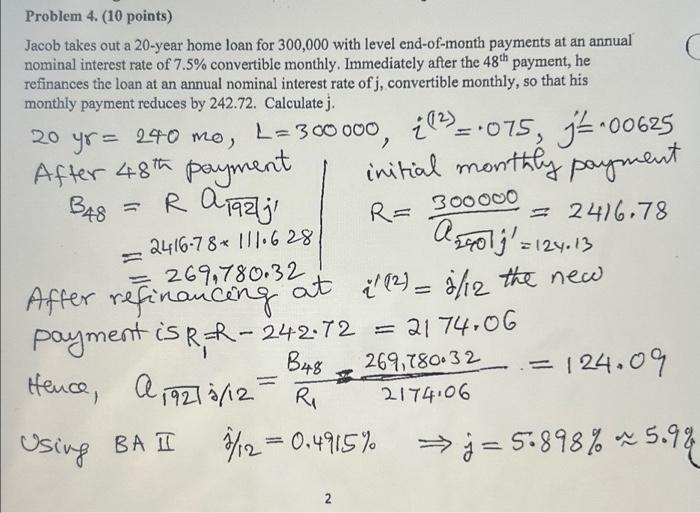 Problem 4. (10 points)
Jacob takes out a 20-year home loan for 300,000 with level end-of-month payments at an annual
nominal interest rate of 7.5% convertible monthly. Immediately after the 48th payment, he
refinances the loan at an annual nominal interest rate of j, convertible monthly, so that his
monthly payment reduces by 242.72. Calculate j.
20 yr = 240 mo, L = 300000, i^(12) = .075, j' = .00625
After 48th payment
B48 = R a192|j'
= 2416.78 * 111.628
= 269,780.32
initial monthly payment
R = 300000 / a240|j' = 124.13 = 2416.78
After refinancing at i'^(12) = j/12 the new
payment is R1 = R - 242.72 = 2174.06
Hence, a192|j/12 = B48 / R1 = 269,780.32 / 2174.06 = 124.09
Using BA II j/12 = 0.4915% ⇒ j = 5.898% ≈ 5.9%
2